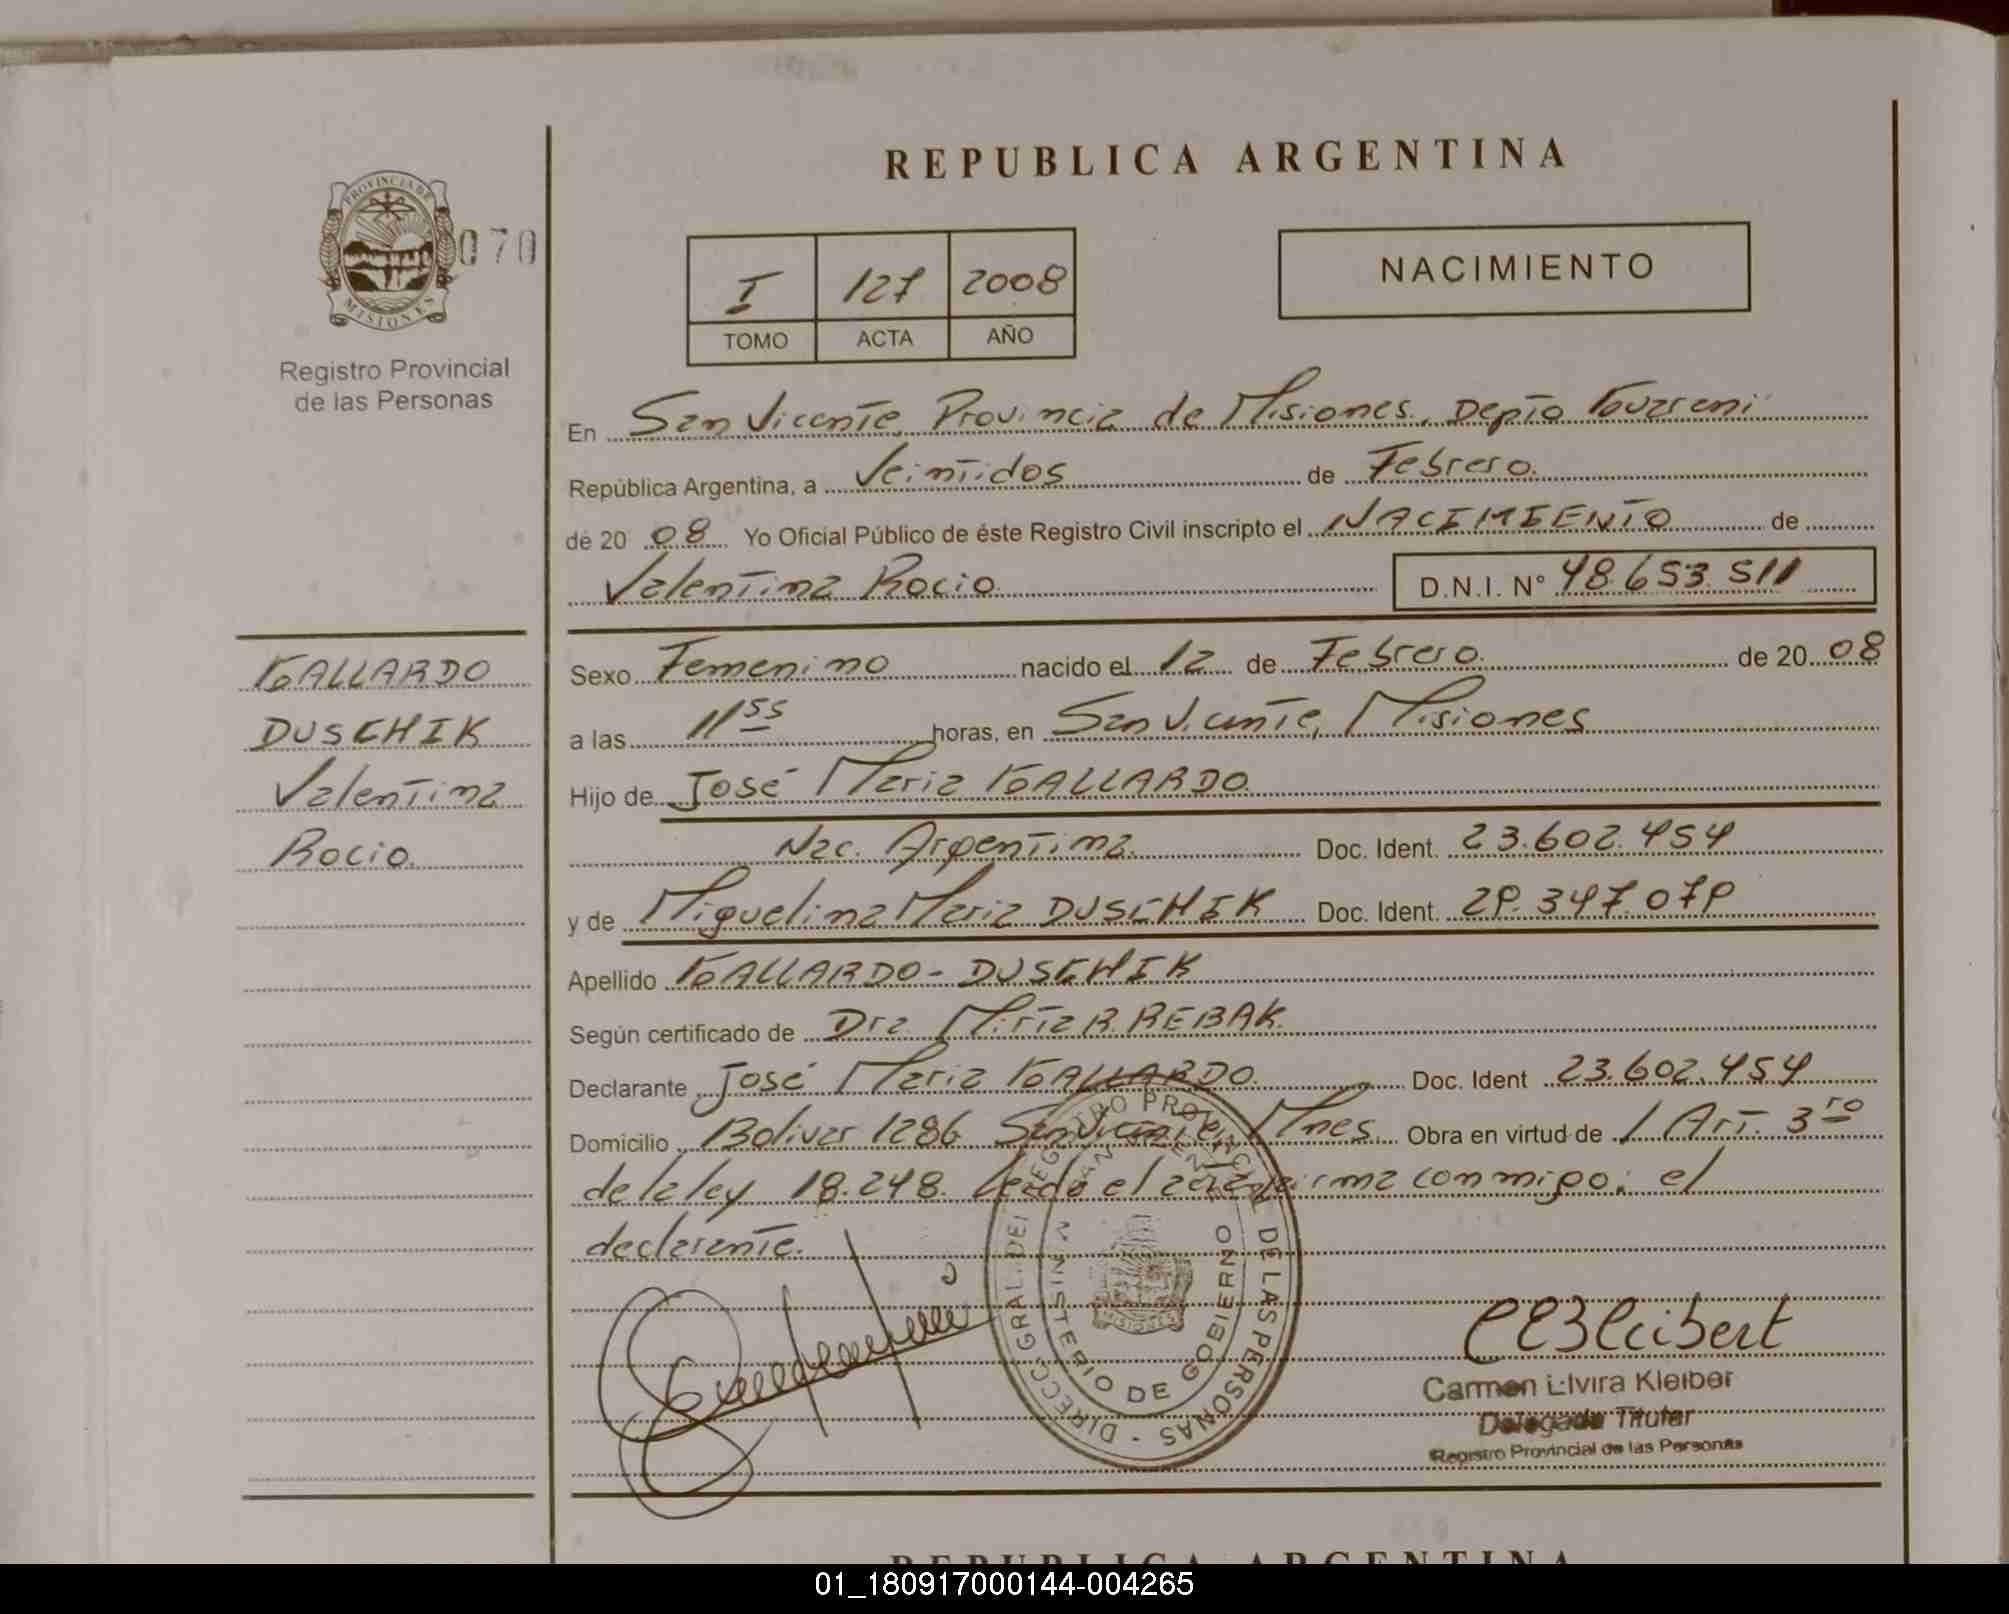 REPUBLICA ARGENTINA
PROVINCIA DE
MISIONES
070
Registro Provincial
de las Personas
I 127 2008
TOMO ACTA AÑO
NACIMIENTO
En San Vicente, Provincia de Misiones, Depto Guarani
República Argentina, a Veintidos de Febrero
de 20 08 Yo Oficial Público de éste Registro Civil inscripto el NACIMIENTO de
Valentina Rocio D.N.I. N° 48.653.511
GALLARDO
DUSCHIK
Valentina
Rocio
Sexo Femenino nacido el 12 de Febrero de 20 08
a las 11 55 horas, en San Vicente, Misiones
Hijo de José Maria GALLARDO
Nac. Argentina Doc. Ident. 23.602.454
y de Miguelina Maria DUSCHIK Doc. Ident. 29.347.079
Apellido GALLARDO - DUSCHIK
Según certificado de Dra. Mirta R. REBAK
Declarante José Maria GALLARDO Doc. Ident 23.602.454
Domicilio Bolivar 1286 San Vicente, Mnes. Obra en virtud de / Art. 3ro
de la ley 18.248. Leida el acta, firma conmigo: el
declarante.
DIRECC. GRAL. DEL REGISTRO PROVINCIAL DE LAS PERSONAS -
MINISTERIO DE GOBIERNO
MISIONES
Carmen Elvira Kleiber
Delegada Titular
Registro Provincial de las Personas
REPUBLICA ARGENTINA
01_180917000144-004265